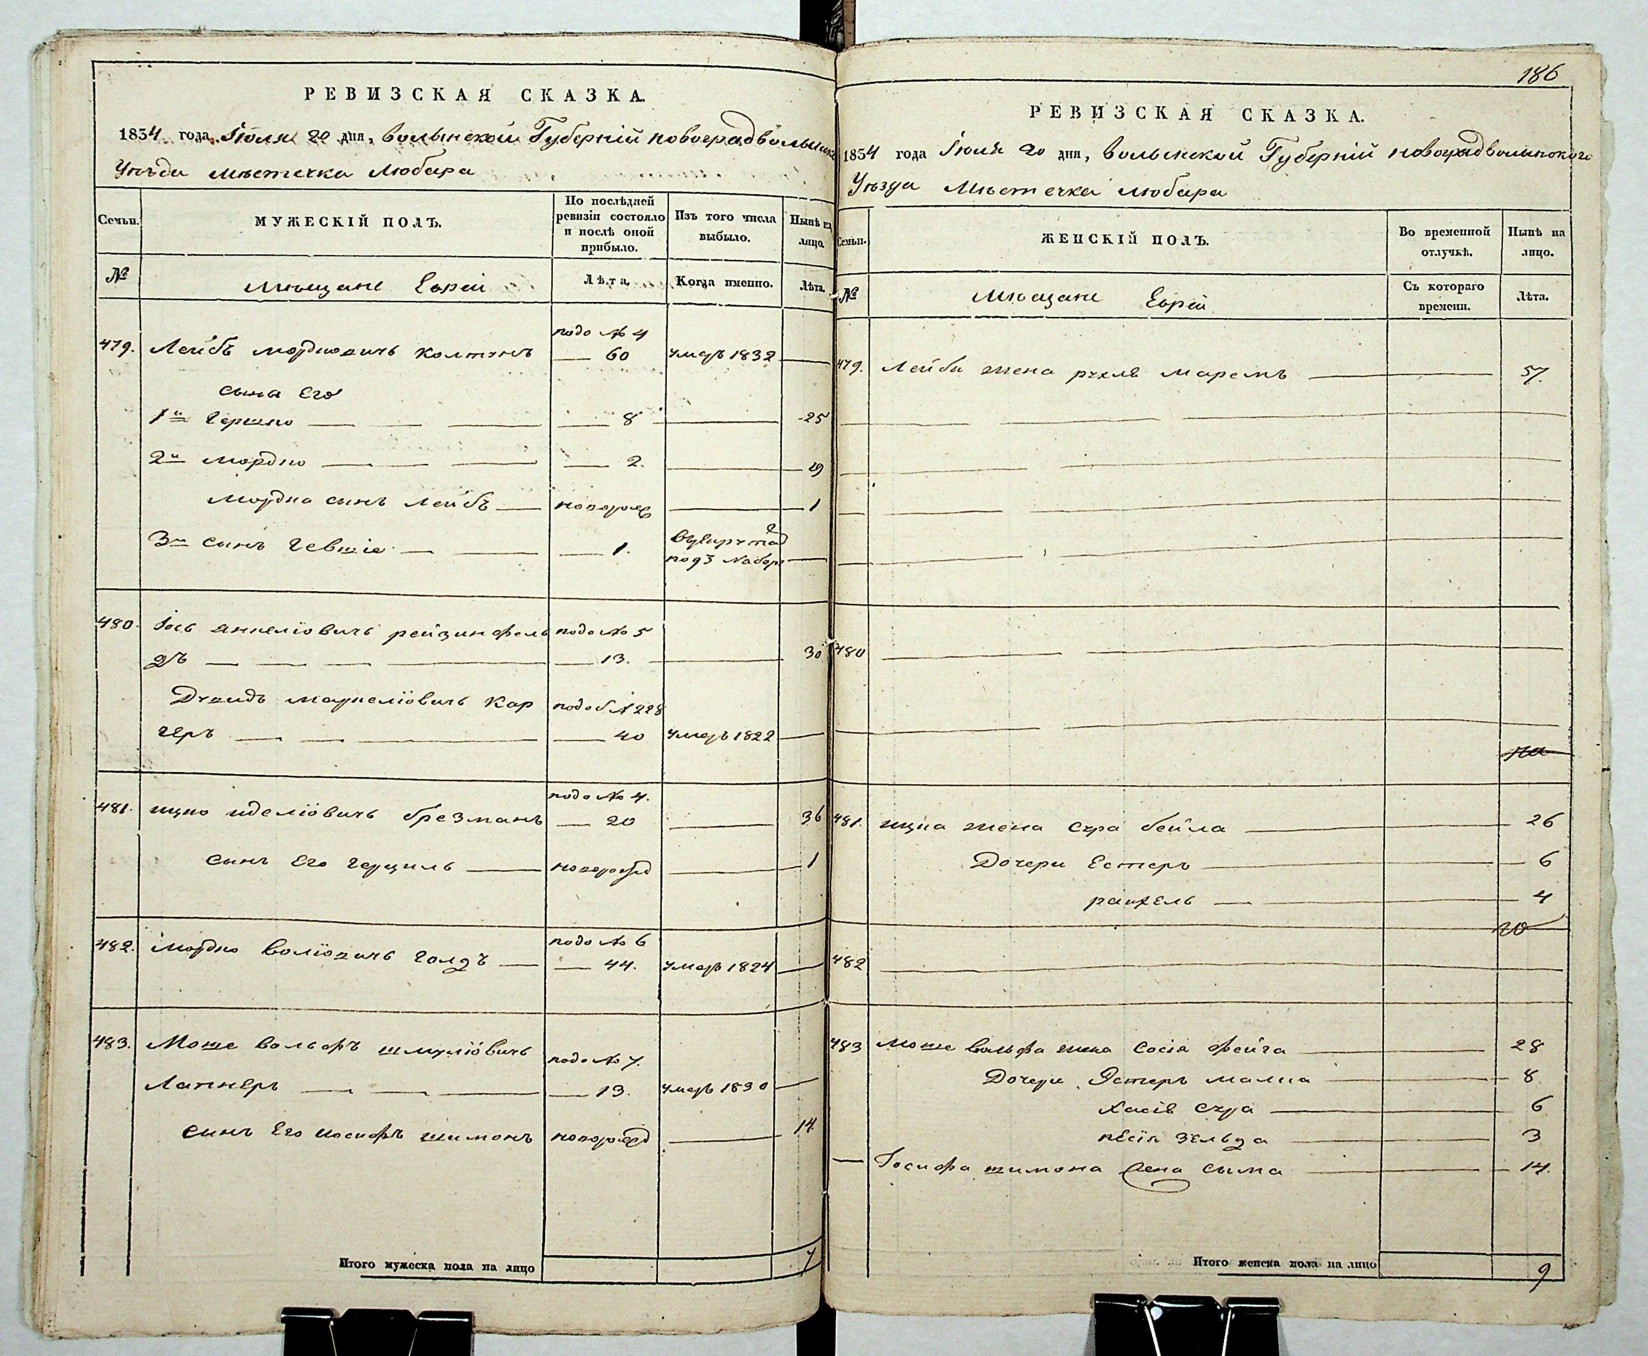 РЕВИЗСКАЯ СКАЗКА.
1834 года Іюля 20 дня, волынской Губерній новоградволынска
Уѣзда мѣстечка Любара
Семьи.
МУЖЕСКІЙ ПОЛЪ.
По послѣдней ревизіи состояло и послѣ оной прибыло.
Изъ того числа выбыло.
Нынѣ на лицо.
№
Мѣщане Еврей
Лѣта.
Когда именно.
Лѣта.
подо № 4
479. Лейбъ мордковичъ колтунъ — 60 умеръ 1832 —
сыны Его
1й Гершко — 8 — 25
2й мордко — 2. — 19
мордка сынъ Лейбъ — новорожд — 1
3й сынъ — 1.
под3 набор
480. Іось янкеліовичъ рейзинфель подо № 5
дъ — 13. — 30
Дувидъ Кар подоб № 228
геръ — 40 умеръ 1822 —
подо № 4.
481. ицко иделіовичъ брезманъ — 20 — 36
сынъ Его герциль — новорожд — 1
подо № 6
482. мордко волїовичъ голдъ — 44. умеръ 1824 —
483. Моше вольфъ шмулїовичъ подо № 7.
Латнеръ — 13. умеръ 1830 —
сынъ Его иосифъ шимонъ новорожд — 14.
Итого мужеска пола на лицо 7
186
РЕВИЗСКАЯ СКАЗКА.
1834 года Іюля 20 дня, волынской Губерній новоградволынского
Уѣзда Мѣстечка любара
Семьи.
ЖЕНСКІЙ ПОЛЪ.
Во временной отлучкѣ.
Нынѣ на лицо.
№
Мѣщане Еврей
Съ котораго времени.
Лѣта.
479. Лейбы жена рухля маремъ — 57.
480
481. ицка жена сура бейла — 26
Дочери Естеръ — 6
рахель — 4
482
483 моше вольфа жена сосія фейга — 28
Дочери Эстеръ малка — 8
хасія сура — 6
песія зельда — 3
— Іосифа шимона жена сима — 14.
Итого женска пола на лицо 9